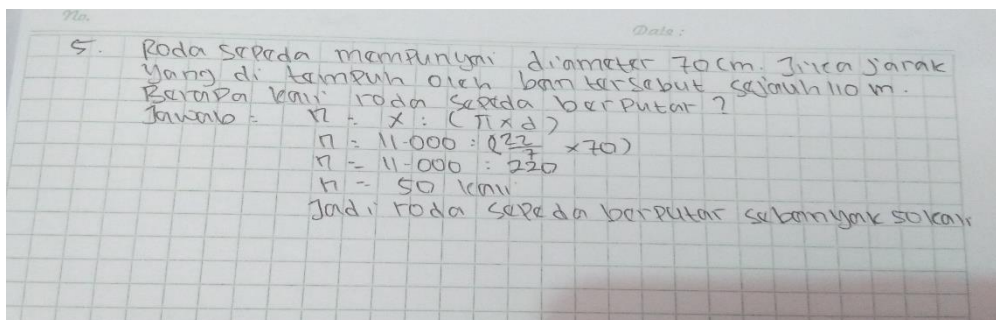 No.
Date :
5. Roda sepeda mempunyai diameter 70 cm. Jika jarak
yang di tempuh oleh ban tersebut sejauh 110 m.
Berapa kali roda sepeda berputar ?
Jawab = n = x : (π x d)
n = 11.000 : (22/7 x 70)
n = 11.000 : 220
n = 50 kali
Jadi roda sepeda berputar sebanyak 50 kali